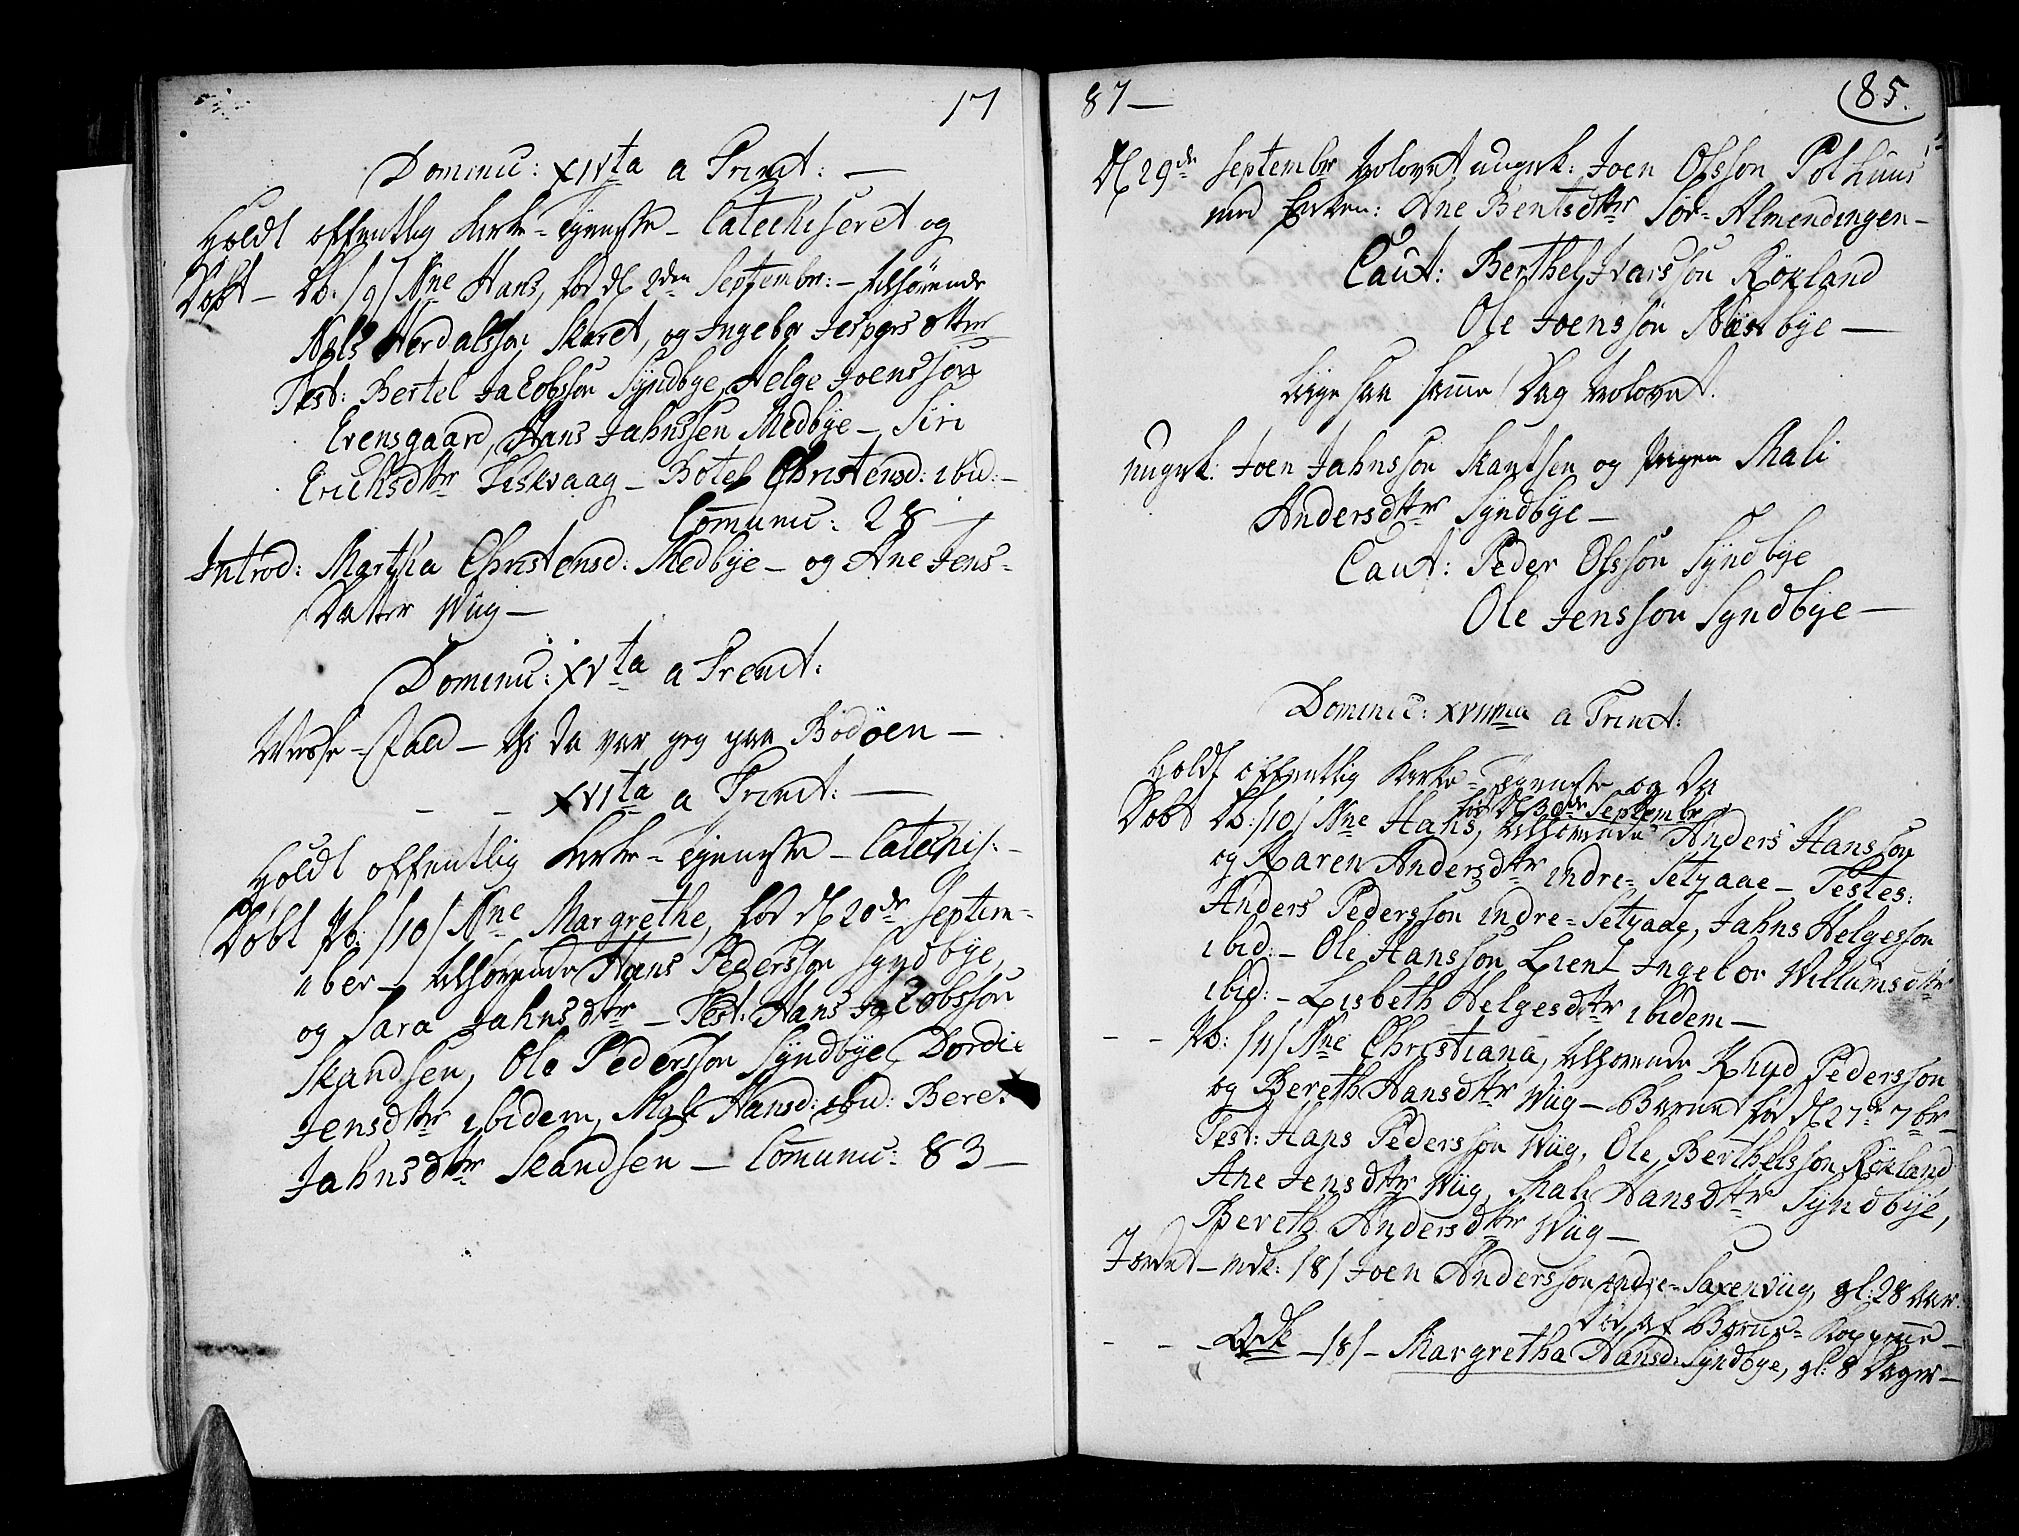 17
Dominic: XIVta a Trinit: —
Holdt offentlig Kirke-Tjeneste — Catechiseret og
Døbt — Db. /9/ Nne Hans, fød d 2den Septembr: — tilhørende
Niels Herdalsson Skaret, og Ingebor Jespersdttr
Test: Bertel Jacobsson Syndbye, Helge Joensson
Evensgaard, Hans Jahnssen Medbye — Siri
Erichsdttr Fiskvaag — Botel Christensd: ibid: —
Commun: 28 —
Introd: Martha Christensd: Medbye — og Ane Jens-
Datter Wiig —
Dominic: XVta a Trinit:
Messe-Fald — thi da var jeg paa Bodøen —
— — XVIta a Trinit: —
Holdt offentlig Kirke-Tjeneste — Catechis: —
Døbt Pb: /10/ Nne Margrethe, fød d 20de Septem-
ber — tilhørende Hans Pedersson Syndbye,
og Sara Jahnsdttr — Test: Hans Jacobsson
Skandsen, Ole Pedersson Syndbye, Dordie
Jensdttr ibidem, Mali Hansd: ibid: Beret
Jahnsdttr Skandsen — Commun: 83 —
87 —
85.
D 29de Septembr trolovet ungk: Joen Olsson Polhuus
med Enken: Ane Bentsdttr Sør-Almendingen —
Caut: Berthel Ivarsson Røkland
Ole Joensson Næstbye —
Lige saa samme Dag trolovet.
ungk: Joen Jahnsson Skantsen og Pigen Mali
Andersdttr Syndbye —
Caut: Peder Olsson Syndbye
Ole Jensson Syndbye —
Dominic: XVIIma a Trinit:
Holdt offentlig Kirke-Tjeneste og da
fød d 3de Septembr
Døbt Db: /10/ Nne Hans, tilhørende Anders Hansson
og Karen Andersdttr indre-Setraae — Testes:
Anders Pedersson indre-Setraae, Jahns Helgesson
ibid: — Ole Hansson Lient Ingebor Willumsdttr
ibid: — Lisbeth Helgesdttr ibidem —
— — Pb: /11/ Nne Christiana, tilhørende Knud Pedersson
og Bereth Hansdttr Wiig — Barnet fød d 27de 7br —
Test: Hans Pedersson Wiig, Ole Berthelsson Røkland
Ane Jensdttr Wiig, Mali Hansdttr Syndbye,
Bereth Andersdttr Wiig —
Jordet — Mdk: /8/ Joen Andersson indre-Saxenviig, gl: 28 Aar
død af Børne-Kopperne —
— — — Qdk — /8/ — Margretha Hansd: Syndbye, gl: 8 Dager —